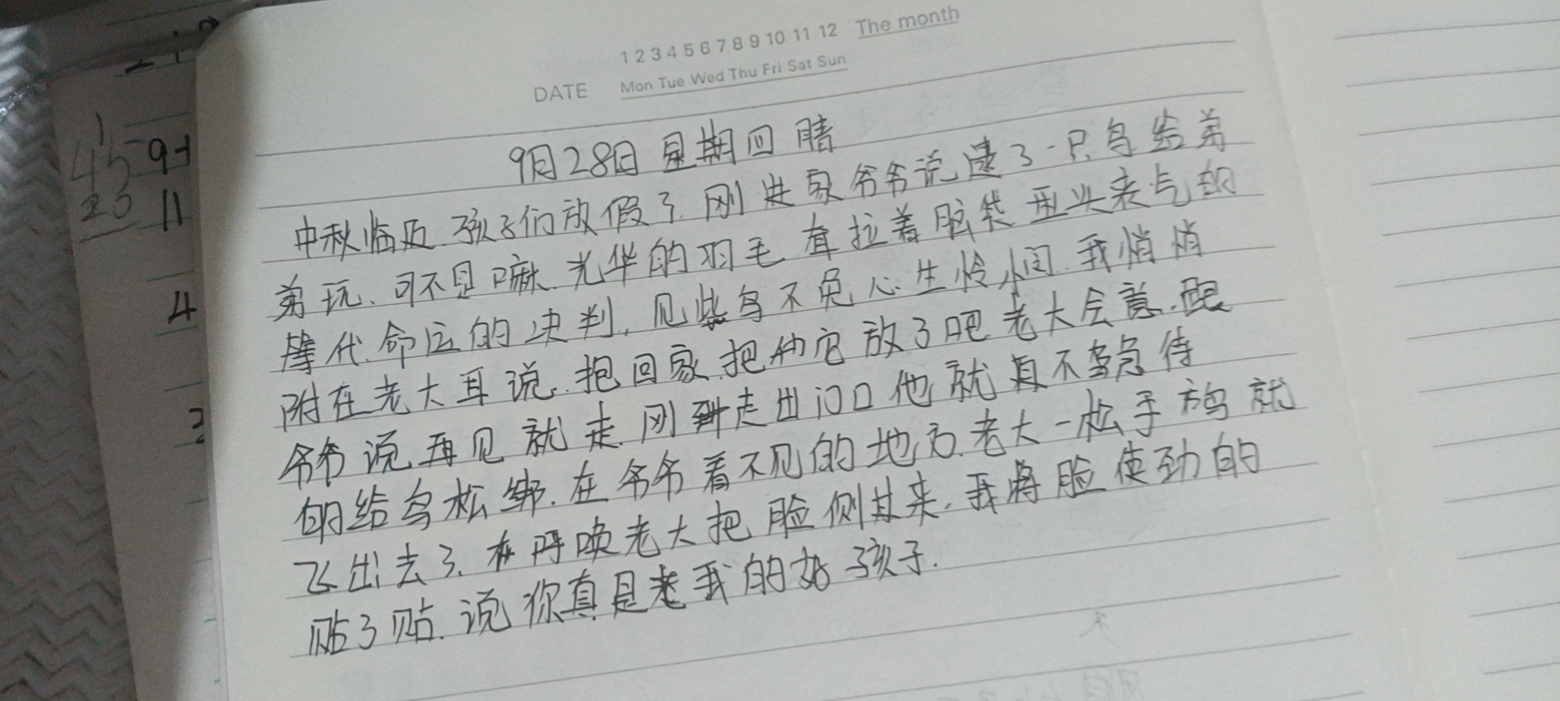 1 2 3 4 5 6 7 8 9 10 11 12 The month
DATE Mon Tue Wed Thu Fri Sat Sun
9月28日 星期四 晴
中秋临近.孩子们放假了.刚进家爷爷说逮了一只鸟给弟
弟玩.可不见嘛.光华的羽毛 耷拉着脑袋 垂头丧气的
等代.命运的决判,见此鸟不免心生怜悯.我悄悄
附在老大耳说.抱回家.把它放了吧老大会意.跟
爷爷说再见就走.刚走出门口他就真不急待
的给鸟松绑.在爷爷看不见的地方.老大一松手 鸟就
飞出去了.呼唤老大把脸侧过来.我将脸使劲的
贴了贴.说你真是我的好孩子.
45 9
20 11
4